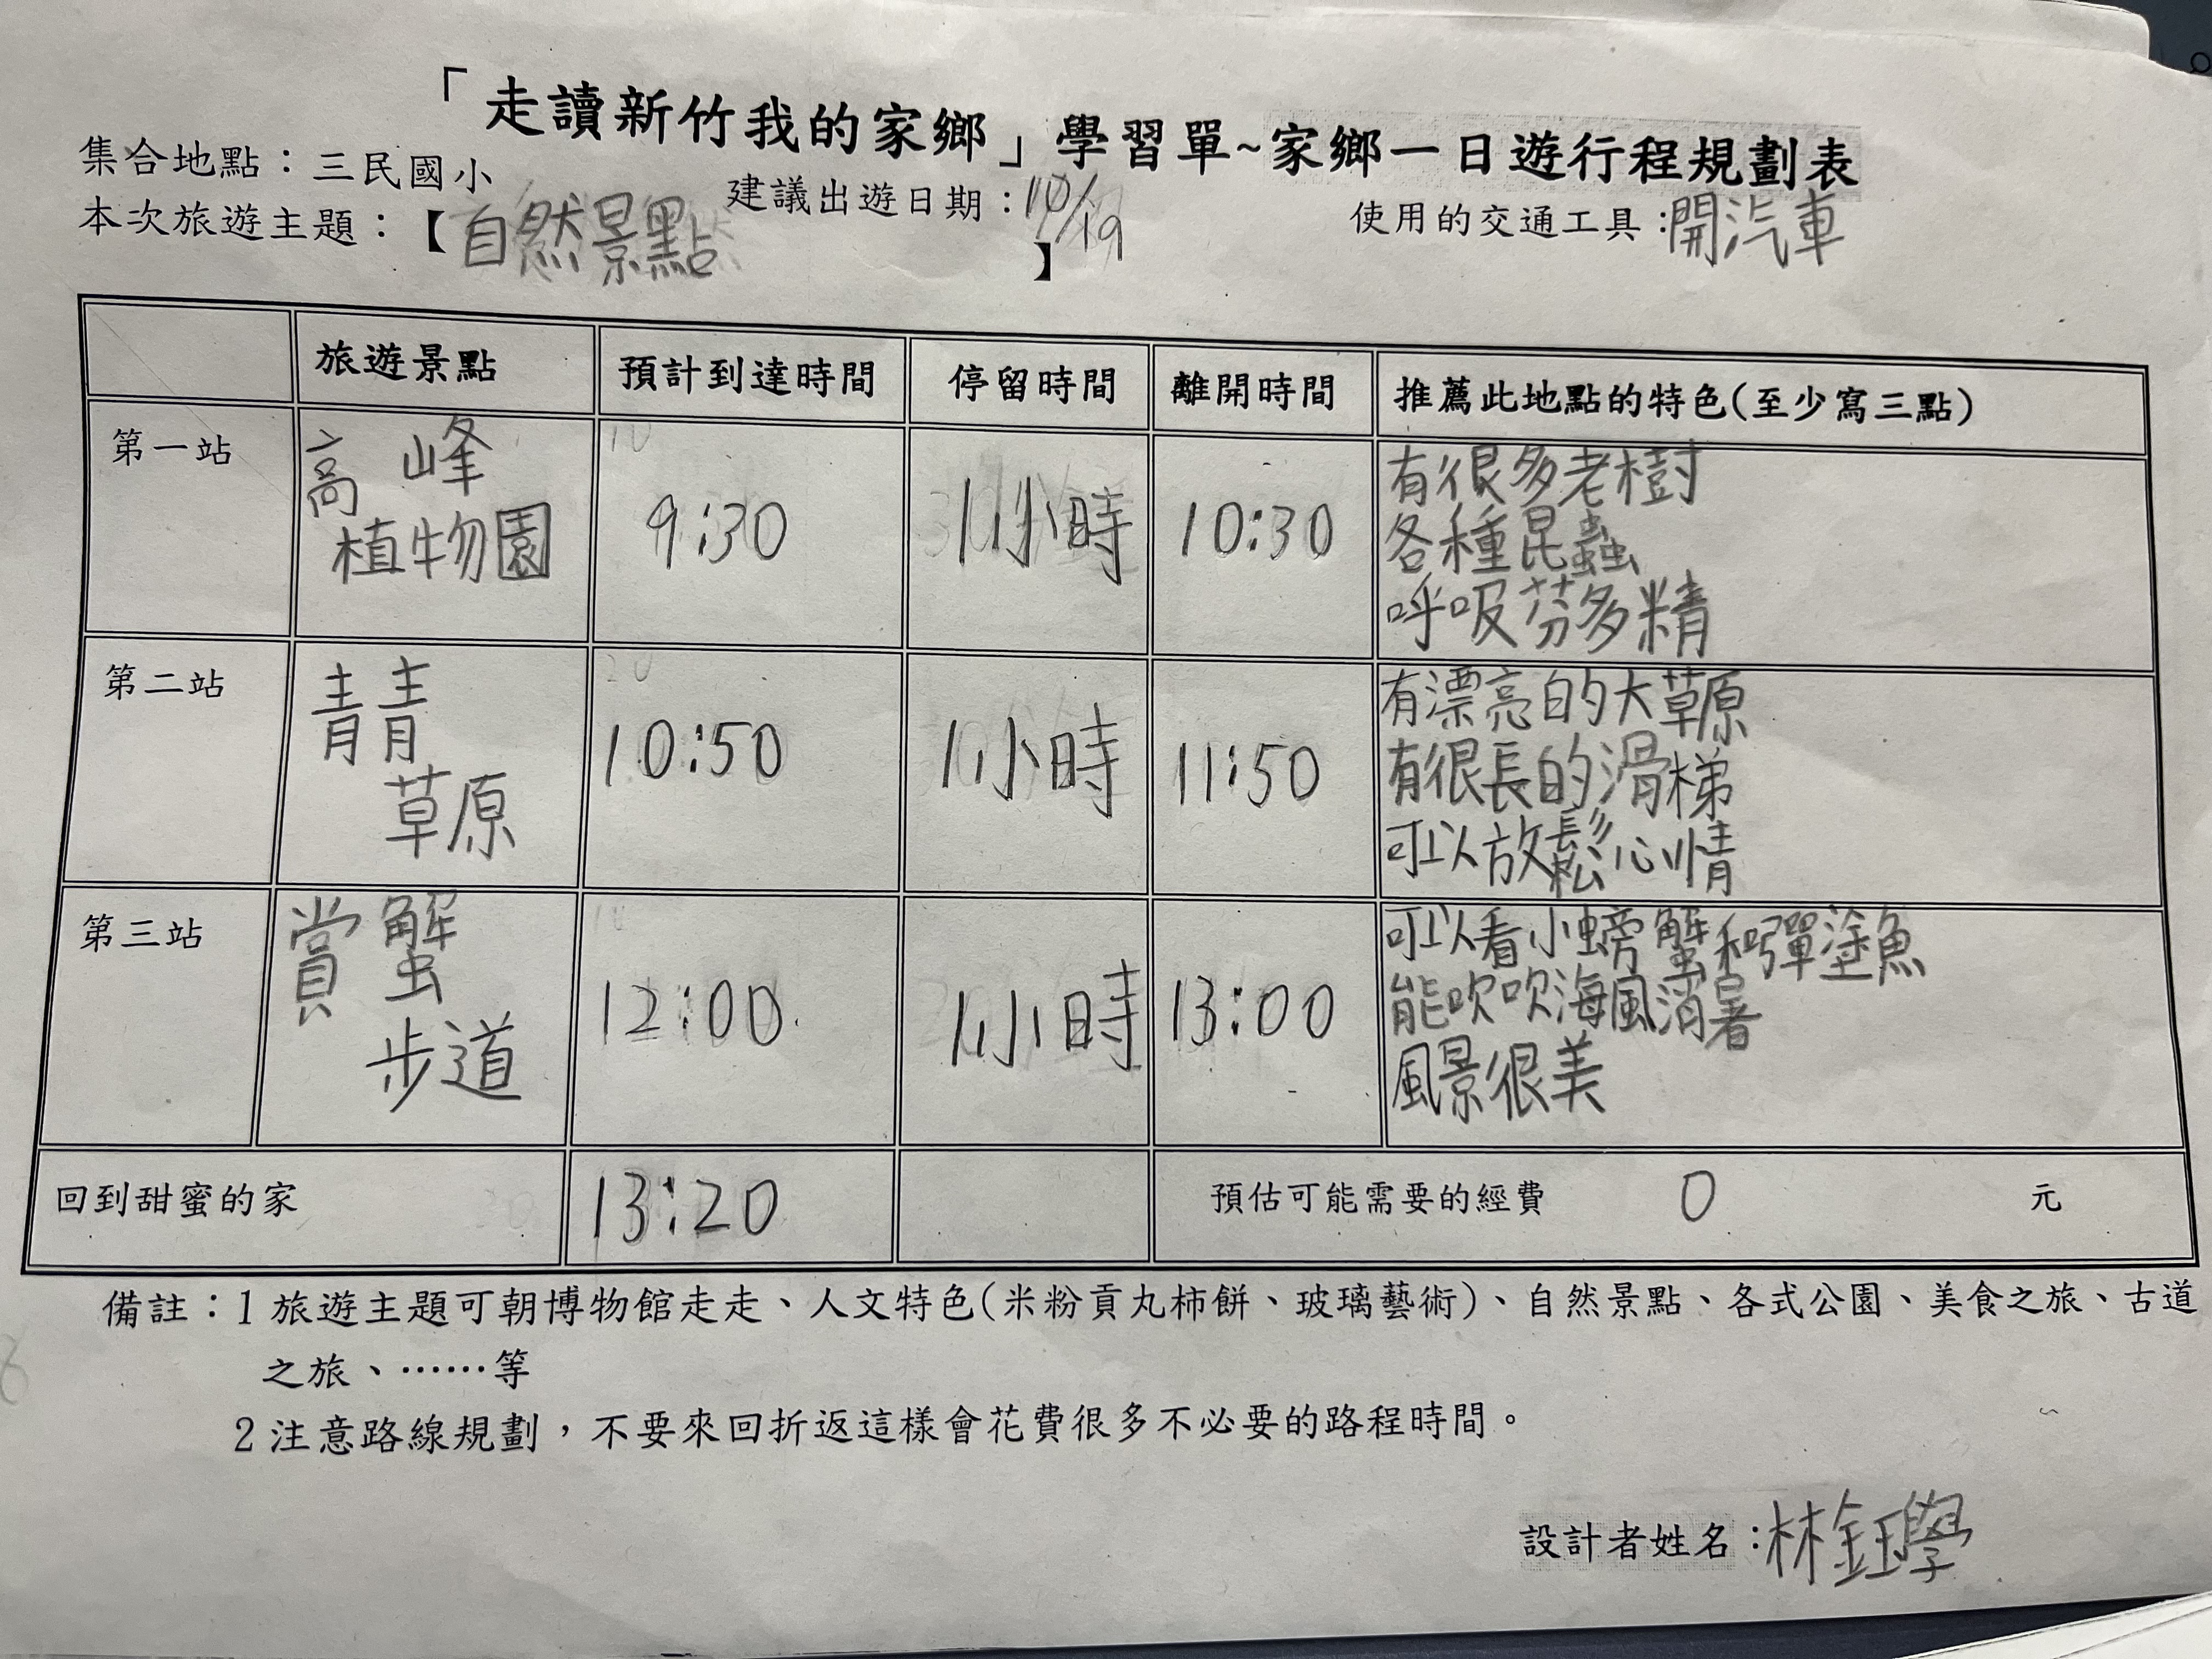 「走讀新竹我的家鄉」學習單~家鄉一日遊行程規劃表
集合地點：三民國小
建議出遊日期：10/19
使用的交通工具：開汽車
本次旅遊主題：【自然景點】
旅遊景點 預計到達時間 停留時間 離開時間 推薦此地點的特色(至少寫三點)
第一站
高峰
植物園
9:30
1小時
10:30
有很多老樹
各種昆蟲
呼吸芬多精
第二站
青青
草原
10:50
1小時
11:50
有漂亮的大草原
有很長的滑梯
可以放鬆心情
第三站
賞蟹
步道
12:00
1小時
13:00
可以看小螃蟹和彈塗魚
能吹吹海風消暑
風景很美
回到甜蜜的家 13:20 預估可能需要的經費 0 元
備註：1 旅遊主題可朝博物館走走、人文特色(米粉貢丸柿餅、玻璃藝術)、自然景點、各式公園、美食之旅、古道
之旅、……等
2 注意路線規劃，不要來回折返這樣會花費很多不必要的路程時間。
設計者姓名：林鈺學